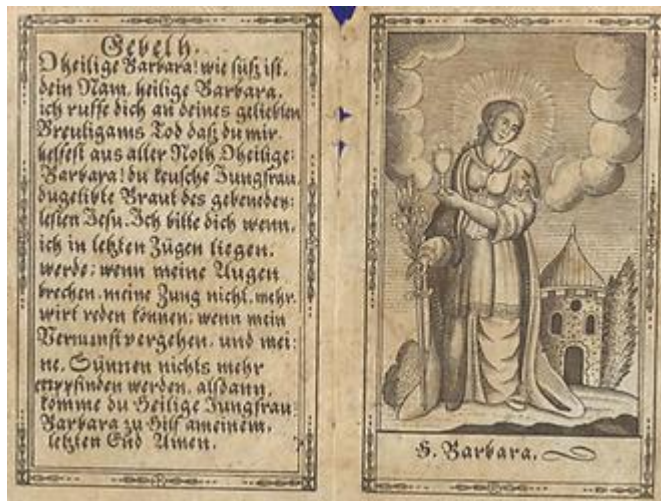 Gebeth.
O heilige Barbara! wie süß ist,
dein Nam, heilige Barbara,
ich ruffe dich an deines geliebten
Breutigams Tod daß du mir
helfest aus aller Noth O heilige:
Barbara! du keusche Jungfrau,
du gelibte Braut des gebenedey:
testen Jesu. Ich bitte dich wenn,
ich in letzten Zügen liegen,
werde: wenn meine Augen
brechen, meine Zung nicht, mehr,
wirt reden können, wenn mein
Vernunft vergehen, und mei:
ne, Sünnen nichts mehr
empfinden werden, alsdann,
komme du Heilige Jungfrau:
Barbara zu Hilf ameinem,
letzten End Amen.
S. Barbara.